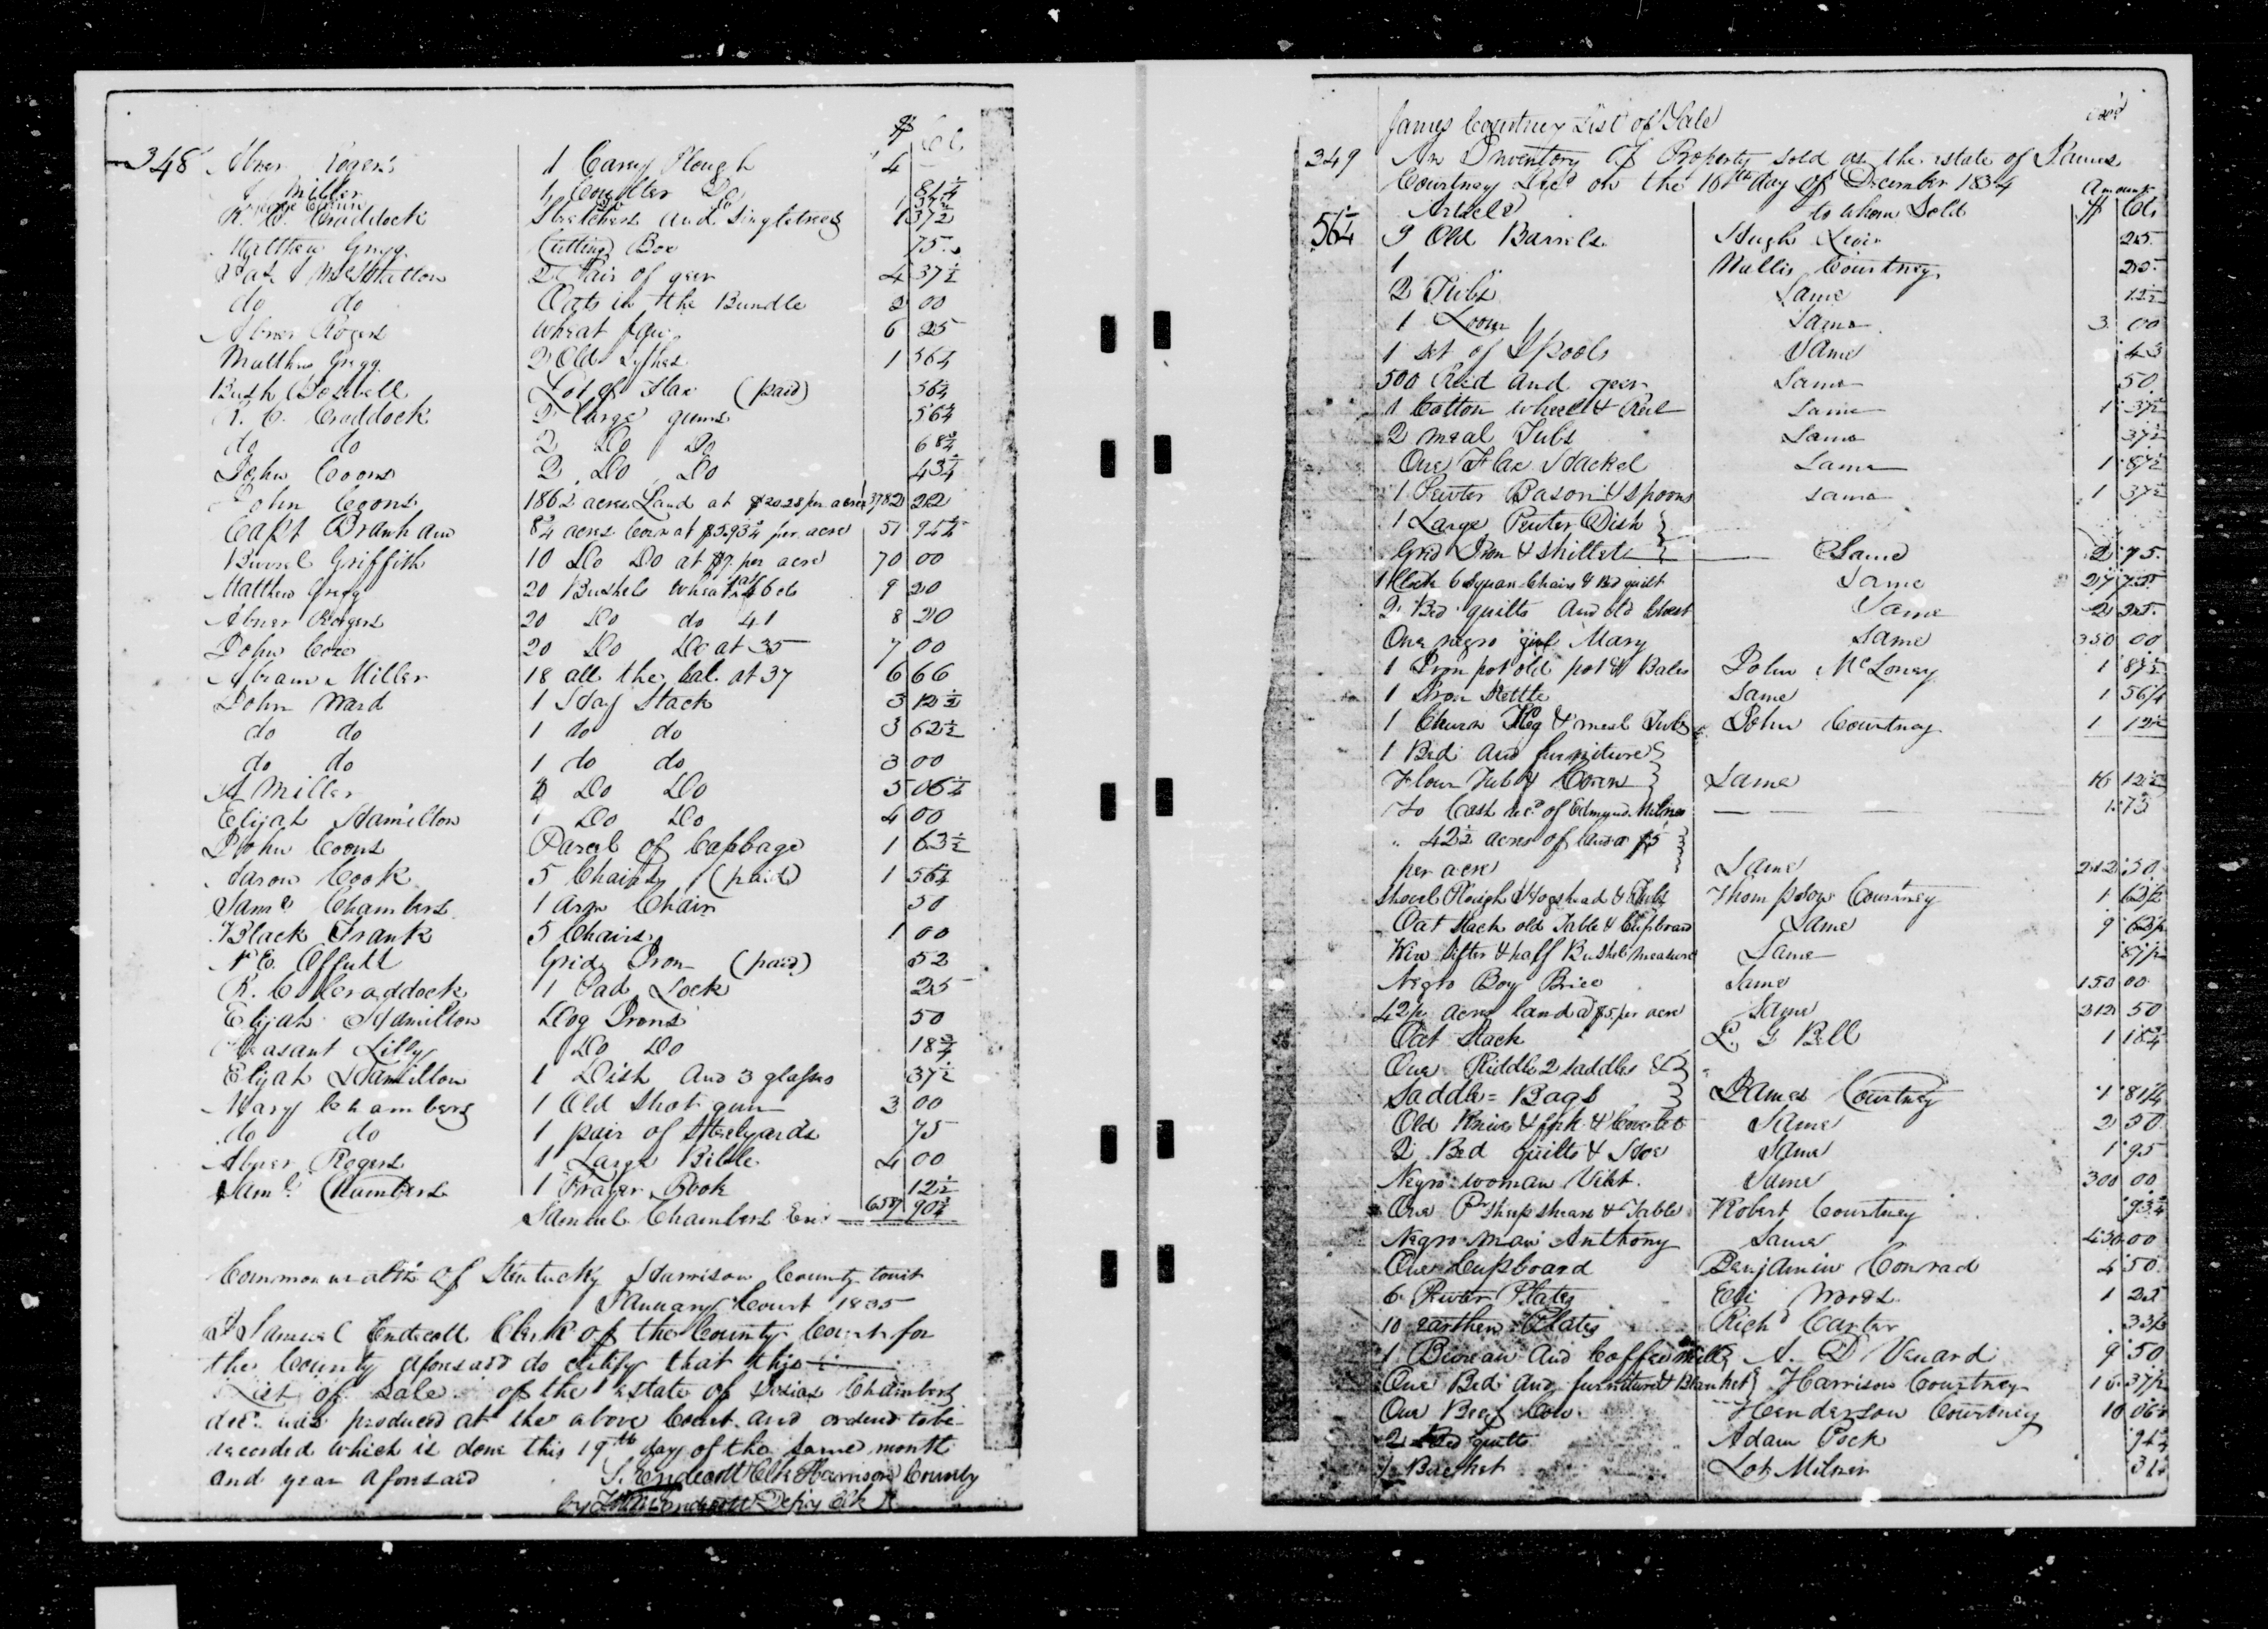 $ Cts
348 Abner Rogers 1 Carey Plough 4
Miller 1 Coulter Do 81¼
R. C. Craddock Stretchers and Singletrees 1 37½
Matthew Gregg Cutting Box 75
2 Pair of geer 4 37½
do do Oats in the Bundle 2 00
Abner Rogers wheat fan 6 25
Matthew Gregg 2 Old Sythes 1 56¼
Bush Boswell Lot of Flax (paid) 56¼
R. C. Craddock 2 large gums 56¼
do do 2 Do Do 68¾
John Coons 2 Do Do 43¾
John Coons 186½ acres Land at $20.28 per acre 3782 22
Capt Branham 8¾ acres Corn at $5.93¾ per acre 51 94½
Burrel Griffith 10 Do Do at $7. per acre 70 00
Matthew Gregg 20 Bushels wheat at 46 cts 9 20
Abner Rogers 20 Do do 41 8 20
John Cox 20 Do Do at 35 7 00
Abram Miller 18 all the bal. at 37 6 66
John Ward 1 Hay Stack 3 12½
do do 1 do do 3 62½
do do 1 do do 3 00
A Miller 1 Do Do 5 06¼
Elijah Hamilton 1 Do Do 4 00
John Coons Parcel of Cabbage 1 63½
Aaron Cook 5 Chairs (paid) 1 56¼
Saml Chambers 1 arm Chair 50
Black Frank 5 Chairs 1 00
Offutt Grid Iron (paid) 52
R. C Craddock 1 Pad Lock 25
Elijah Hamilton Dog Irons 50
Pleasant Lilly Do Do 18¾
Elijah Hamilton 1 Dish and 3 glasses 37½
Mary Chambers 1 Old Shot gun 3 00
do do 1 pair of Steelyards 75
Abner Rogers 1 Large Bible 4 00
Saml Chambers 1 Prayer Book 12½
Samuel Chambers Exr 6587 90¾
Commonwealth of Kentucky Harrison County towit
January Court 1835
I Samuel Endicott Clerk of the County Court for
the County aforesaid do certify that this
List of sale of the estate of Josias Chambers
decd was produced at the above Court and ordered to be
recorded which is done this 19th day of the same month
and year aforesaid S. Endicott Clk Harrison County
by Endicott Depy Clk
James Courtney List of Sale
349 An Inventory of Property sold as the estate of James
Courtney Decd on the 16th day of December 1834
Articles to whom Sold Amount $ Cts
56¼ 9 Old Barrels Hugh 25
1 Courtney 25
2 Tubs Same 12½
1 Loom Same 3 00
1 set of Spools Same 43
500 Reed and geer Same 50
1 Cotton wheel & Reel Same 1 37½
2 meal Tubs Same 37½
One Flax Hackel Same 1 87½
1 Pewter Bason & spoons Same 1 37½
1 Large Peuter Dish
Grid Iron & skillet Same 2 75
1 Clock 6 Square Chairs & Bed quilt Same 27 75
2 Bed quilts and old Chest Same 2 25
One negro girl Mary Same 350 00
1 Iron pot old pot & Bales John McLoney 1 87½
1 Iron Kettle Same 1 56¼
1 Churn Keg & meal Tub John Courtney 1 12½
1 Bed and furniture
Flour Tub & Corn Same 16 12½
To Cash recd of Edmund Milner 1.75
" 42½ acres of land a $5
per acre Same 212 50
Shovel Plough Hogshead & Tubs Thompson Courtney 1 62½
Oat Stack old Table & Cupboard Same 9 62½
Wire Sifter & half Bushel measure Same 87½
Negro Boy Brice Same 150 00
42½ acres land @ $5 per acre Same 212 50
Oat Stack L. G Bell 1 18¾
One Riddle 2 saddles &
Saddle=Bags James Courtney 1 81¼
Old Knives & fork & Coverlet Same 2 50
2 Bed quilts & Hoe Same 1 95
Negro woman Same 300 00
One Pr Sheep shears & Table Robert Courtney 93¾
Negro man Anthony Same 430 00
One Cupboard Benjamin Conrad 4 50
6 Pewter Plates Eli Woods 1 25
10 earthen Plates Richd Carter 33½
1 Bureau and Coffee mill A. D Venard 9 50
One Bed and furniture & Blanket Harrison Courtney 16 37½
One Beef Cow Henderson Courtney 10 06¼
2 Bed quilts Adam Pock 94¾
1 Basket Lot Milner 31¼